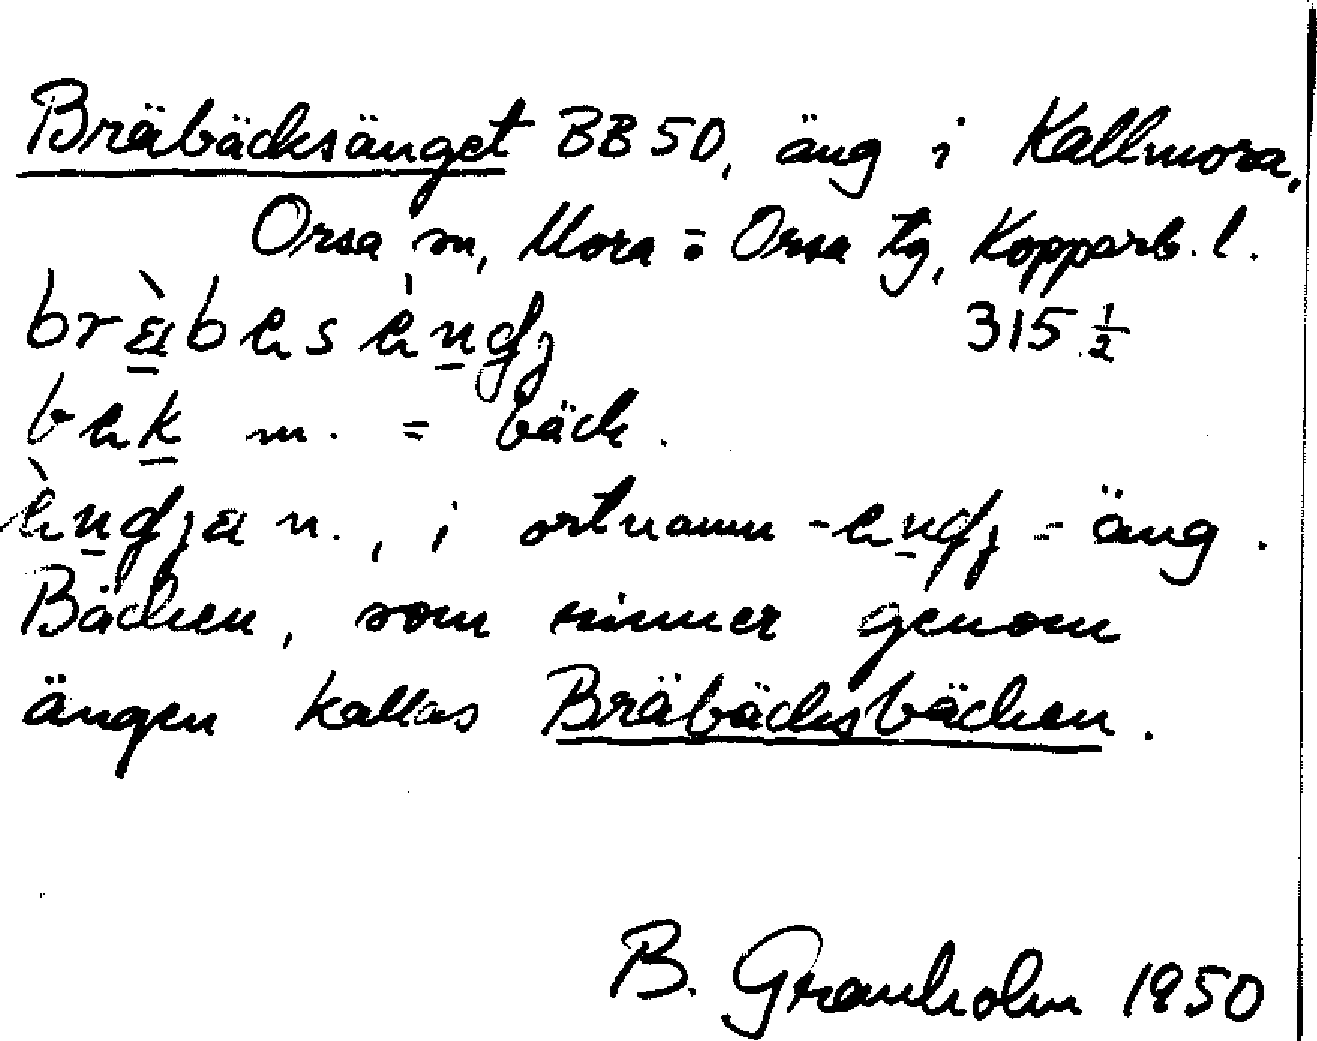 Bräbäcksänget BB 50, äng i Kallmora,
Orsa sn, Mora o. Orsa tg, Kopparb. l.
315 1/2
m. = bäck.
n., i ortnamn = äng.
Bäcken, som rinner genom
ängen kallas Bräbäcksbäcken.
B. Granholm 1950